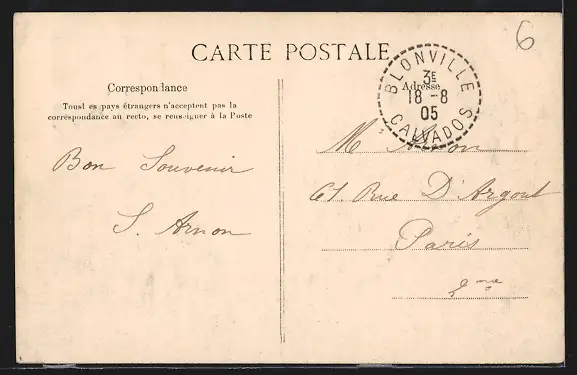 6
CARTE POSTALE
Correspondance
Tous les pays étrangers n'acceptent pas la
correspondance au recto, se renseigner à la Poste
Bon Souvenir
S. Arnon
BLONVILLE
3E
18 -8
05
CALVADOS
Adresse
M Arnon
61. Rue D'Argout
Paris
2eme